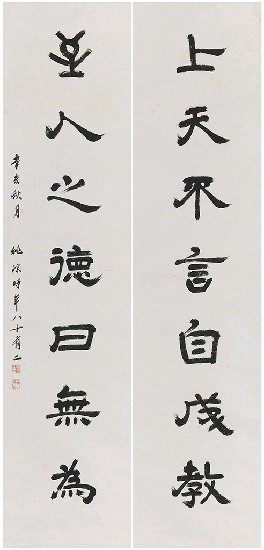 上天不言自成教
至人之德曰無為
辛亥秋月 姚琮時年八十有二